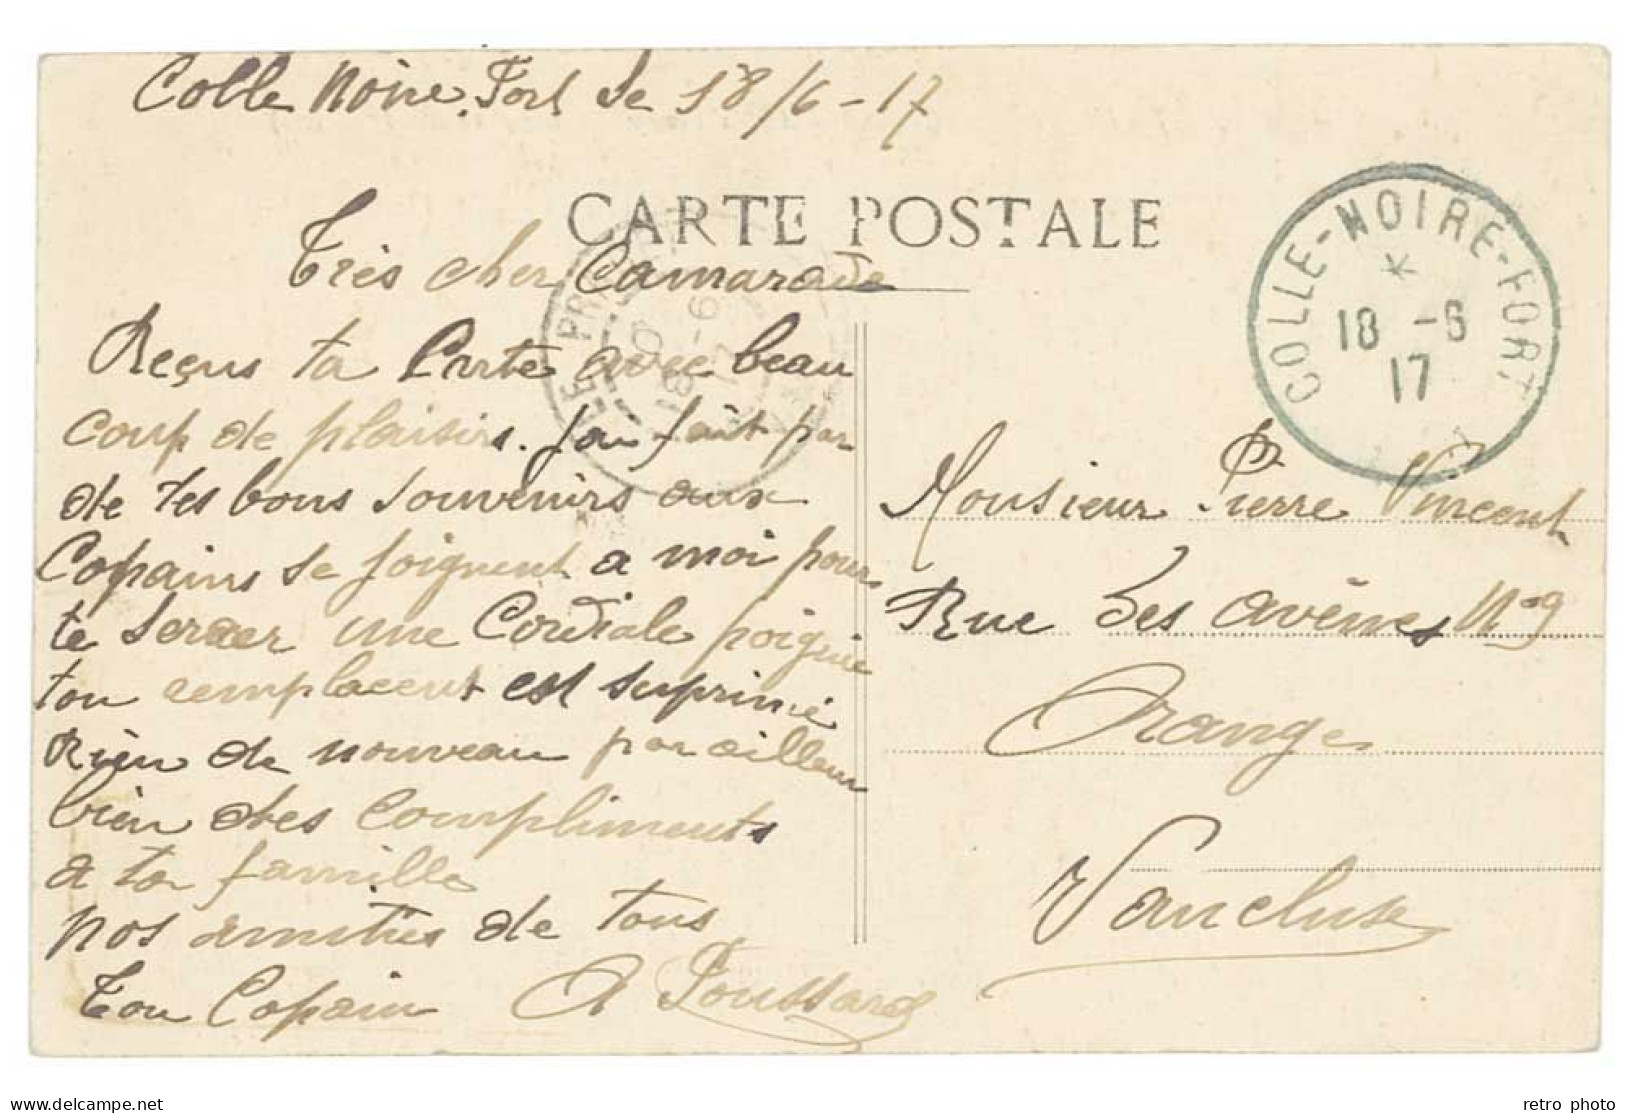 Colle Noire. Fort le 18/6-17
CARTE POSTALE
COLLE-NOIRE-FORT
*
18 -6
17
LE PRA
18 -6
17
Très cher Camarade
Reçus ta Carte avec beau
coup de plaisirs. J'ai fait par
de tes bons souvenirs aux
Copains se joignent a moi pour
te serrer une Cordiale poignié
ton remplacent est suprimé
Rien de nouveau par ailleur
bien des compliments
a ta famille
nos amitiés de tous
Ton Copain A Poussard
Monsieur Pierre Vincent
Rue des avênes N°9
Orange
Vaucluse
delcampe.net
retro photo